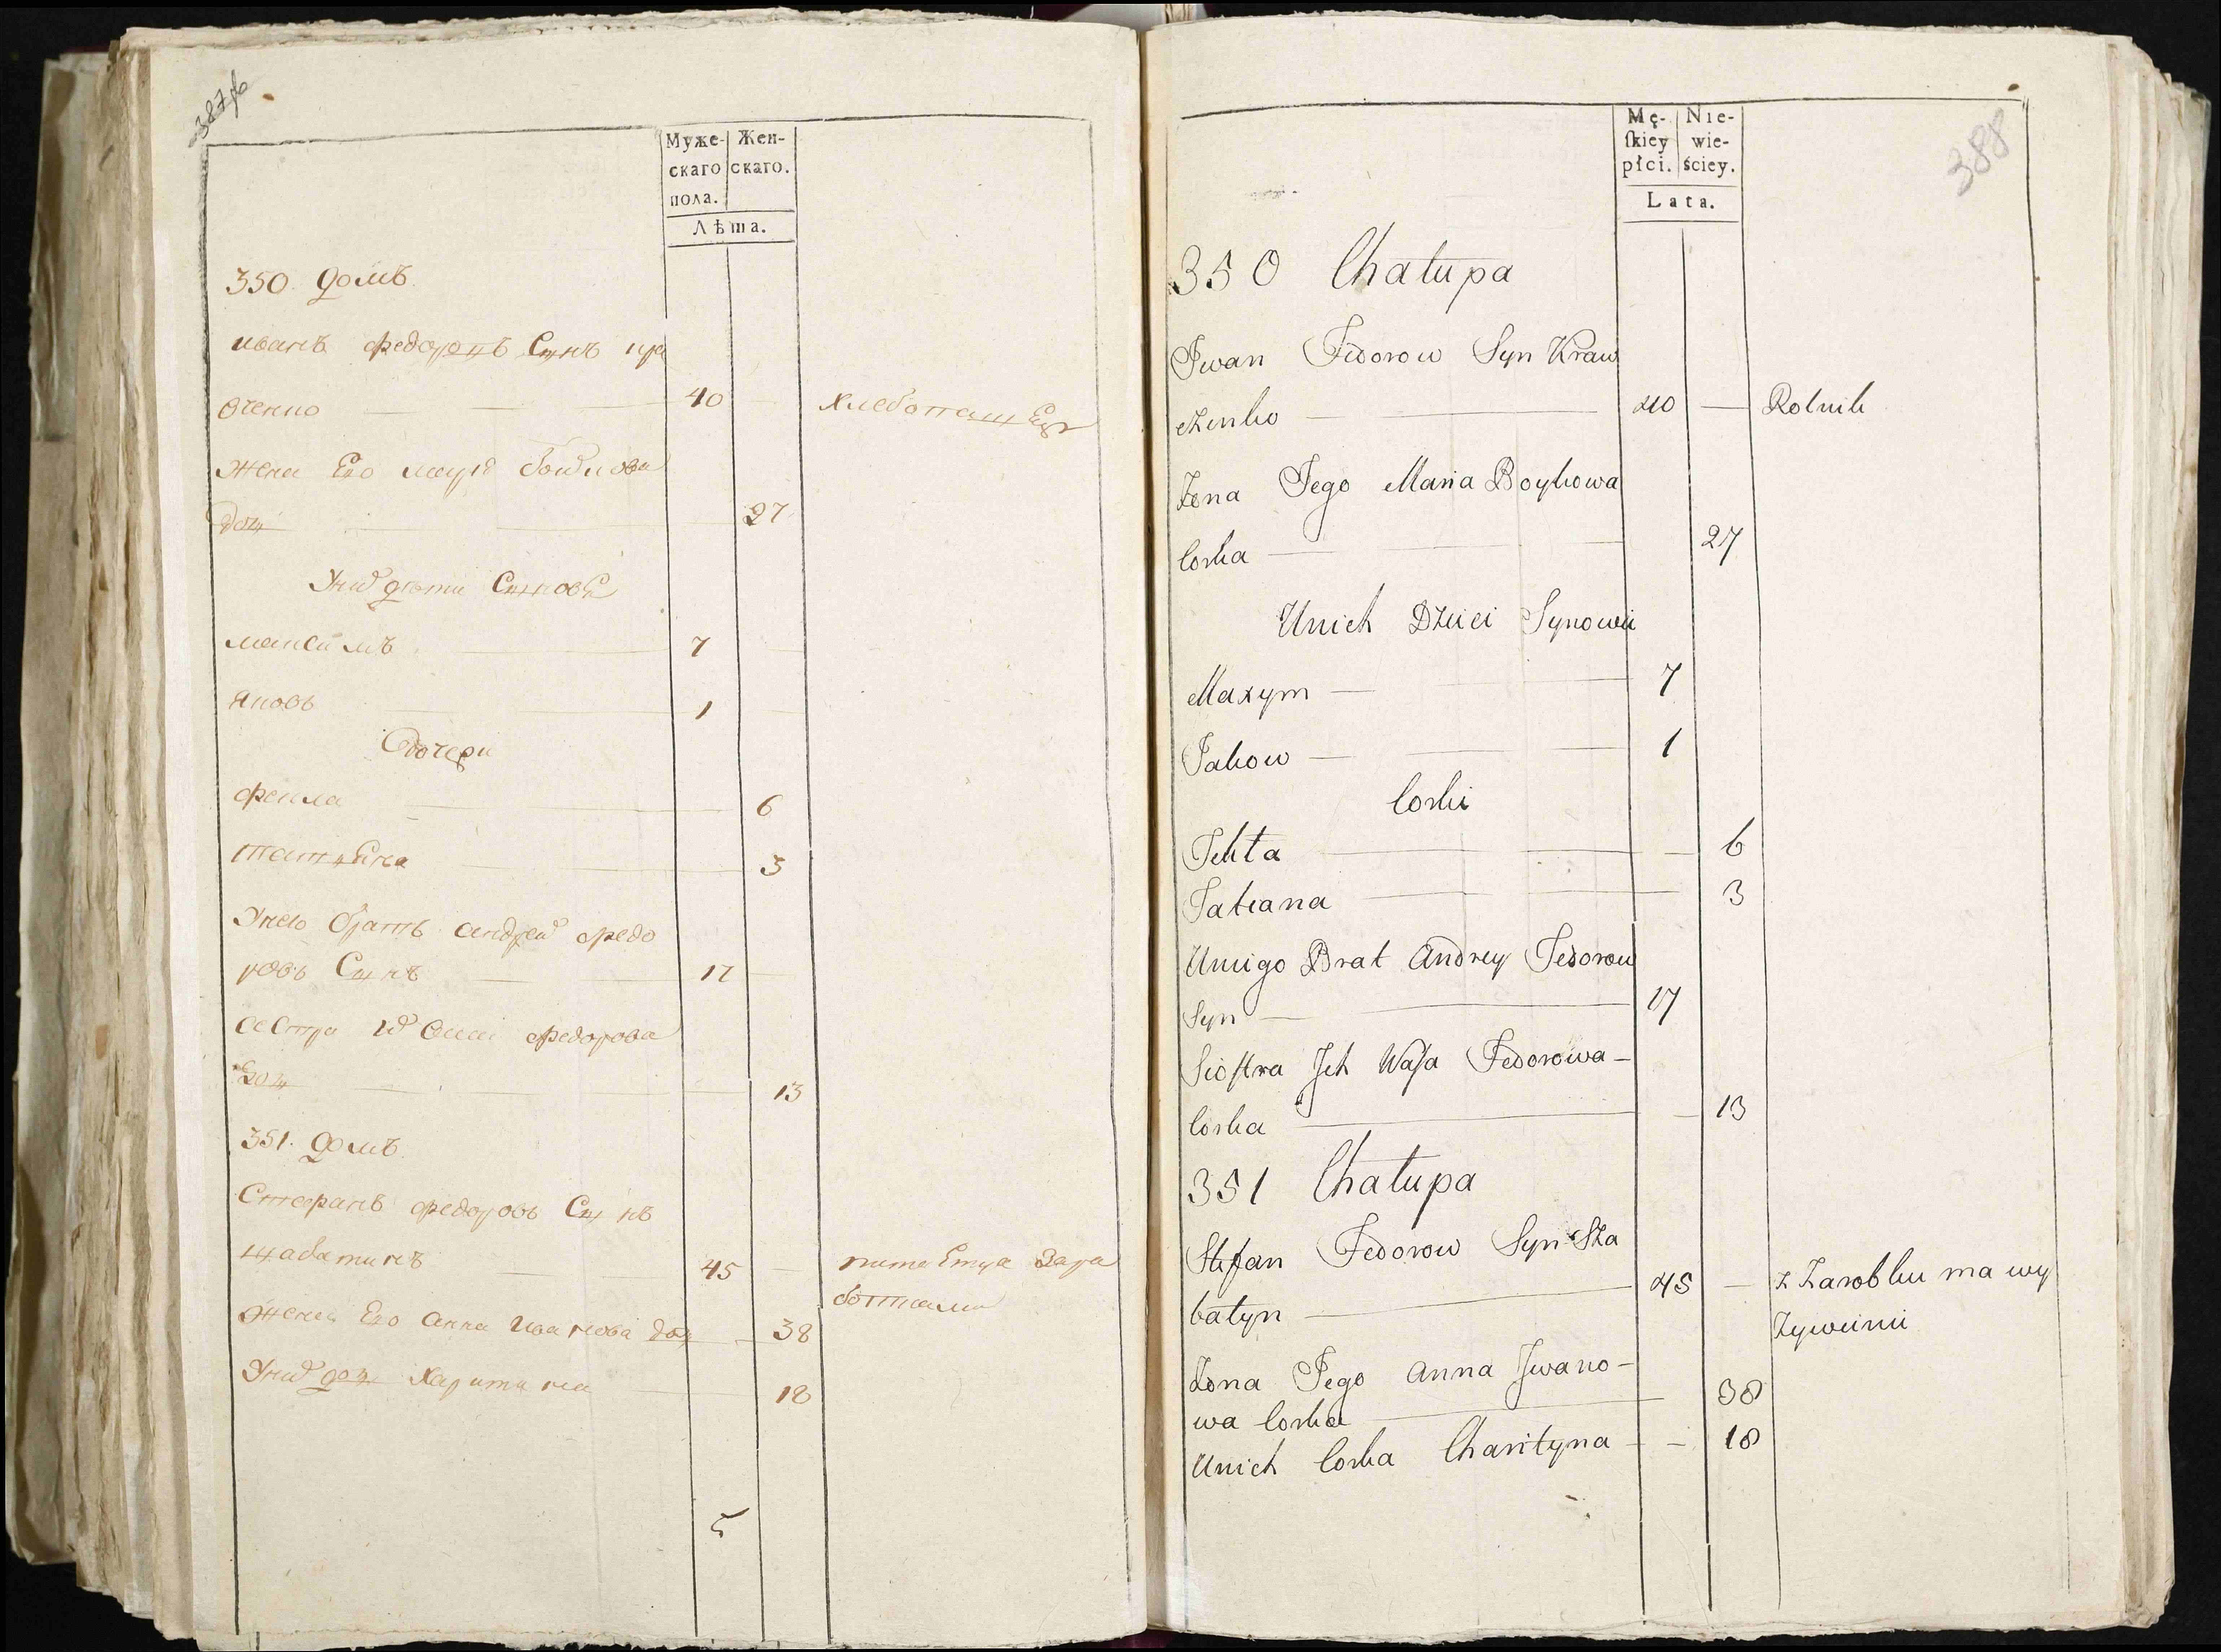 387об
Муже- Жен-
скаго скаго.
пола.
Лѣта.
350. домъ
иванъ федоровъ Сынъ кра
вченко 40 хлебопашецъ
жена Его марія бойкова
доч 27
Унихъ дѣти Сыновя
максимъ 7
яковъ 1
дочери
фекла 6
татьяна 3
Унего братъ андрей федо
ровъ Сынъ 17
сестра ихъ федорова
доч 13
351. домъ
Стефанъ федоровъ Сынъ
шабатинъ 45 питаетца зара
ботками
жена Его анна иванова доч 38
Унихъ доч харитина 18
5
388
Mę- Nie-
ſkiey wie-
płci. ściey.
Lata.
350 Chałupa
Jwan Fedorow Syn Kraw
czenko 40 — Rolnik
Żona Jego Maria Boykowa
Corka 27
Unich Dzieci Synowie
Maxym 7
Jakow 1
Corki
Fekta 6
Tatiana 3
Uniego Brat Andrey Fedorow
Syn 17
Sioſtra Jch Waſa Fedorowa
Corka 13
351 Chałupa
Stefan Fedorow Syn Sza
batyn 45 — z Zarobku ma wy
Zywienii
Żona Jego Anna Jwano-
wa Corka 38
Unich Corka Charityna 18